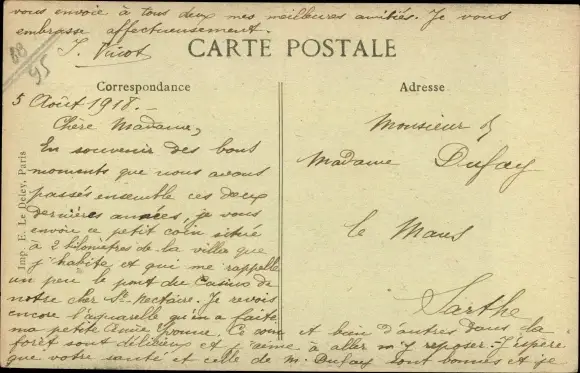 vous envoie à tous deux mes meilleures amitiés. Je vous
embrasse affectueusement.
CARTE POSTALE
88
95
Correspondance
5 Août 1918.-
Chère Madame,
En souvenir des bons
moments que nous avons
passés ensemble ces deux
dernières années, je vous
envoie ce petit coin situé
à 2 kilomètres de la villa que
j'habite et qui me rappelle
un peu le pont du Casino de
notre cher St-Nectaire. Je revois
encore l'aquarelle qu'en a faite
ma petite amie Yvonne. Ce coin et bien d'autres dans la
forêt sont délicieux et j'aime à aller m'y reposer. J'espère
que votre santé et celle de M. Dufay sont bonnes et je
Adresse
Monsieur &
Madame Dufay
le Mans
Sarthe
Imp. E. Le Deley, Paris